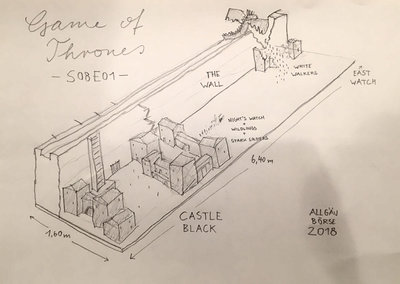 Game of
Thrones
- S08E01 -
THE
WALL
WHITE
WALKERS
EAST
WATCH
NIGHT'S WATCH
+
WILDLINGS
+
STARK SOLDIERS
6,40 m
CASTLE
BLACK
1,60 m
ALLGÄU
BÖRSE
2018